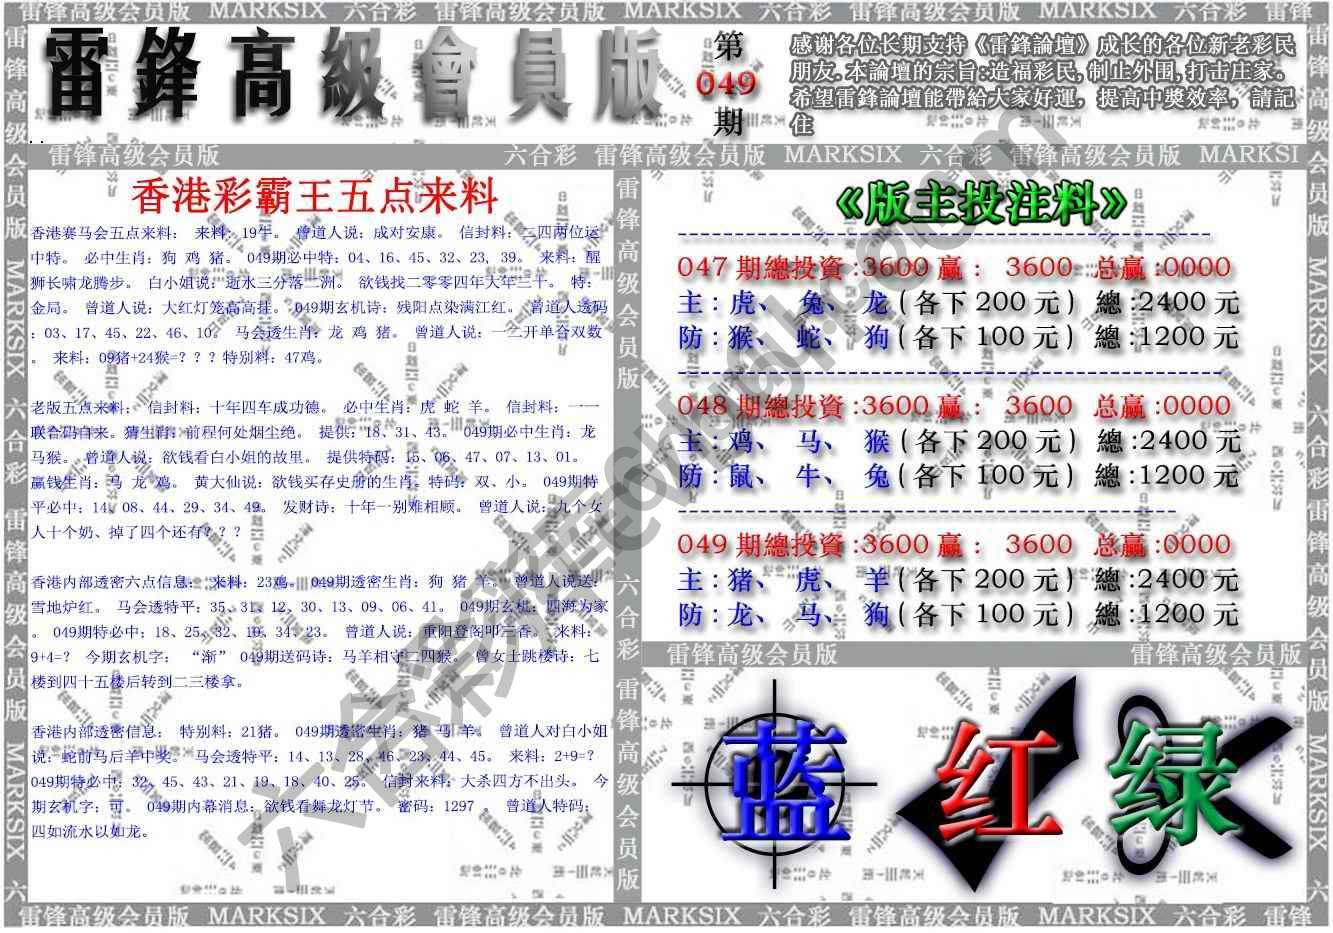 雷锋高级会员版 MARKSIX 六合彩 雷锋高级会员版 MARKSIX 六合彩 雷锋高级会员版 MARKSIX 六合彩 雷锋
雷鋒高級會員版
第
049
期
感谢各位长期支持《雷鋒論壇》成长的各位新老彩民
朋友.本論壇的宗旨:造福彩民,制止外围,打击庄家。
希望雷鋒論壇能帶給大家好運，提高中獎效率，請記
住
雷锋高级会员版 六合彩 雷锋高级会员版 MARKSIX 六合彩 雷锋高级会员版 MARKSI
香港彩霸王五点来料
香港赛马会五点来料： 来料：19牛。 曾道人说：成对安康。 信封料：二四两位运
中特。 必中生肖：狗 鸡 猪。 049期必中特：04、16、45、32、23, 39。 来料：醒
狮长啸龙腾步。 白小姐说：逝水三分落二洲。 欲钱找二零零四年大年三十。 特：
金局。 曾道人说：大红灯笼高高挂。 049期玄机诗：残阳点染满江红。 曾道人透码
：03、17、45、22、46、10。 马会透生肖：龙 鸡 猪。 曾道人说：一二开单合双数
。 来料：09猪+24猴=？？？特别料：47鸡。
老版五点来料： 信封料：十年四车成功德。 必中生肖：虎 蛇 羊。 信封料：一一
联合码自来。猜生肖：前程何处烟尘绝。 提供：18、31、43。 049期必中生肖：龙
马猴。 曾道人说：欲钱看白小姐的故里。 提供特码：15、06、47、07、13、01。
赢钱生肖：马 龙 鸡。 黄大仙说：欲钱买存史册的生肖。特码：双、小。 049期特
平必中：14、08、44、29、34、49。 发财诗：十年一别难相顾。 曾道人说：九个女
人十个奶、掉了四个还有？？？
香港内部透密六点信息： 来料：23鸡。 049期透密生肖：狗 猪 羊。 曾道人说送：
雪地炉红。 马会透特平：35、31、12、30、13、09、06、41。 049期玄机：四海为家
。 049期特必中：18、25、32、10、34、23。 曾道人说：重阳登阁叩三香。 来料：
9+4=？ 今期玄机字： “渐” 049期送码诗：马羊相守二四猴。 曾女士跳楼诗：七
楼到四十五楼后转到二三楼拿。
香港内部透密信息： 特别料：21猪。 049期透密生肖：猪 马 羊。 曾道人对白小姐
说：蛇前马后羊中奖。 马会透特平：14、13、28、46、23、44、45。 来料：2+9=？
049期特必中：32、45、43、21、19、18、40、25。 信封来料：大杀四方不出头。 今
期玄机字：可。 049期内幕消息：欲钱看舞龙灯节。 密码：1297 。 曾道人特码：
四如流水以如龙。
《版主投注料》
047期總投資:3600赢： 3600 总赢:0000
主:虎、 兔、 龙(各下200元) 總:2400元
防:猴、 蛇、 狗(各下100元) 總:1200元
048期總投資:3600赢： 3600 总赢:0000
主:鸡、 马、 猴(各下200元) 總:2400元
防:鼠、 牛、 兔(各下100元) 總:1200元
049期總投資:3600赢： 3600 总赢:0000
主:猪、 虎、 羊(各下200元) 總:2400元
防:龙、 马、 狗(各下100元) 總:1200元
雷锋高级会员版 雷锋高级会员版
蓝 红 绿
雷锋高级会员版 MARKSIX 六合彩 雷锋高级会员版 MARKSIX 六合彩 雷锋高级会员版 MARKSIX 六合彩 雷锋